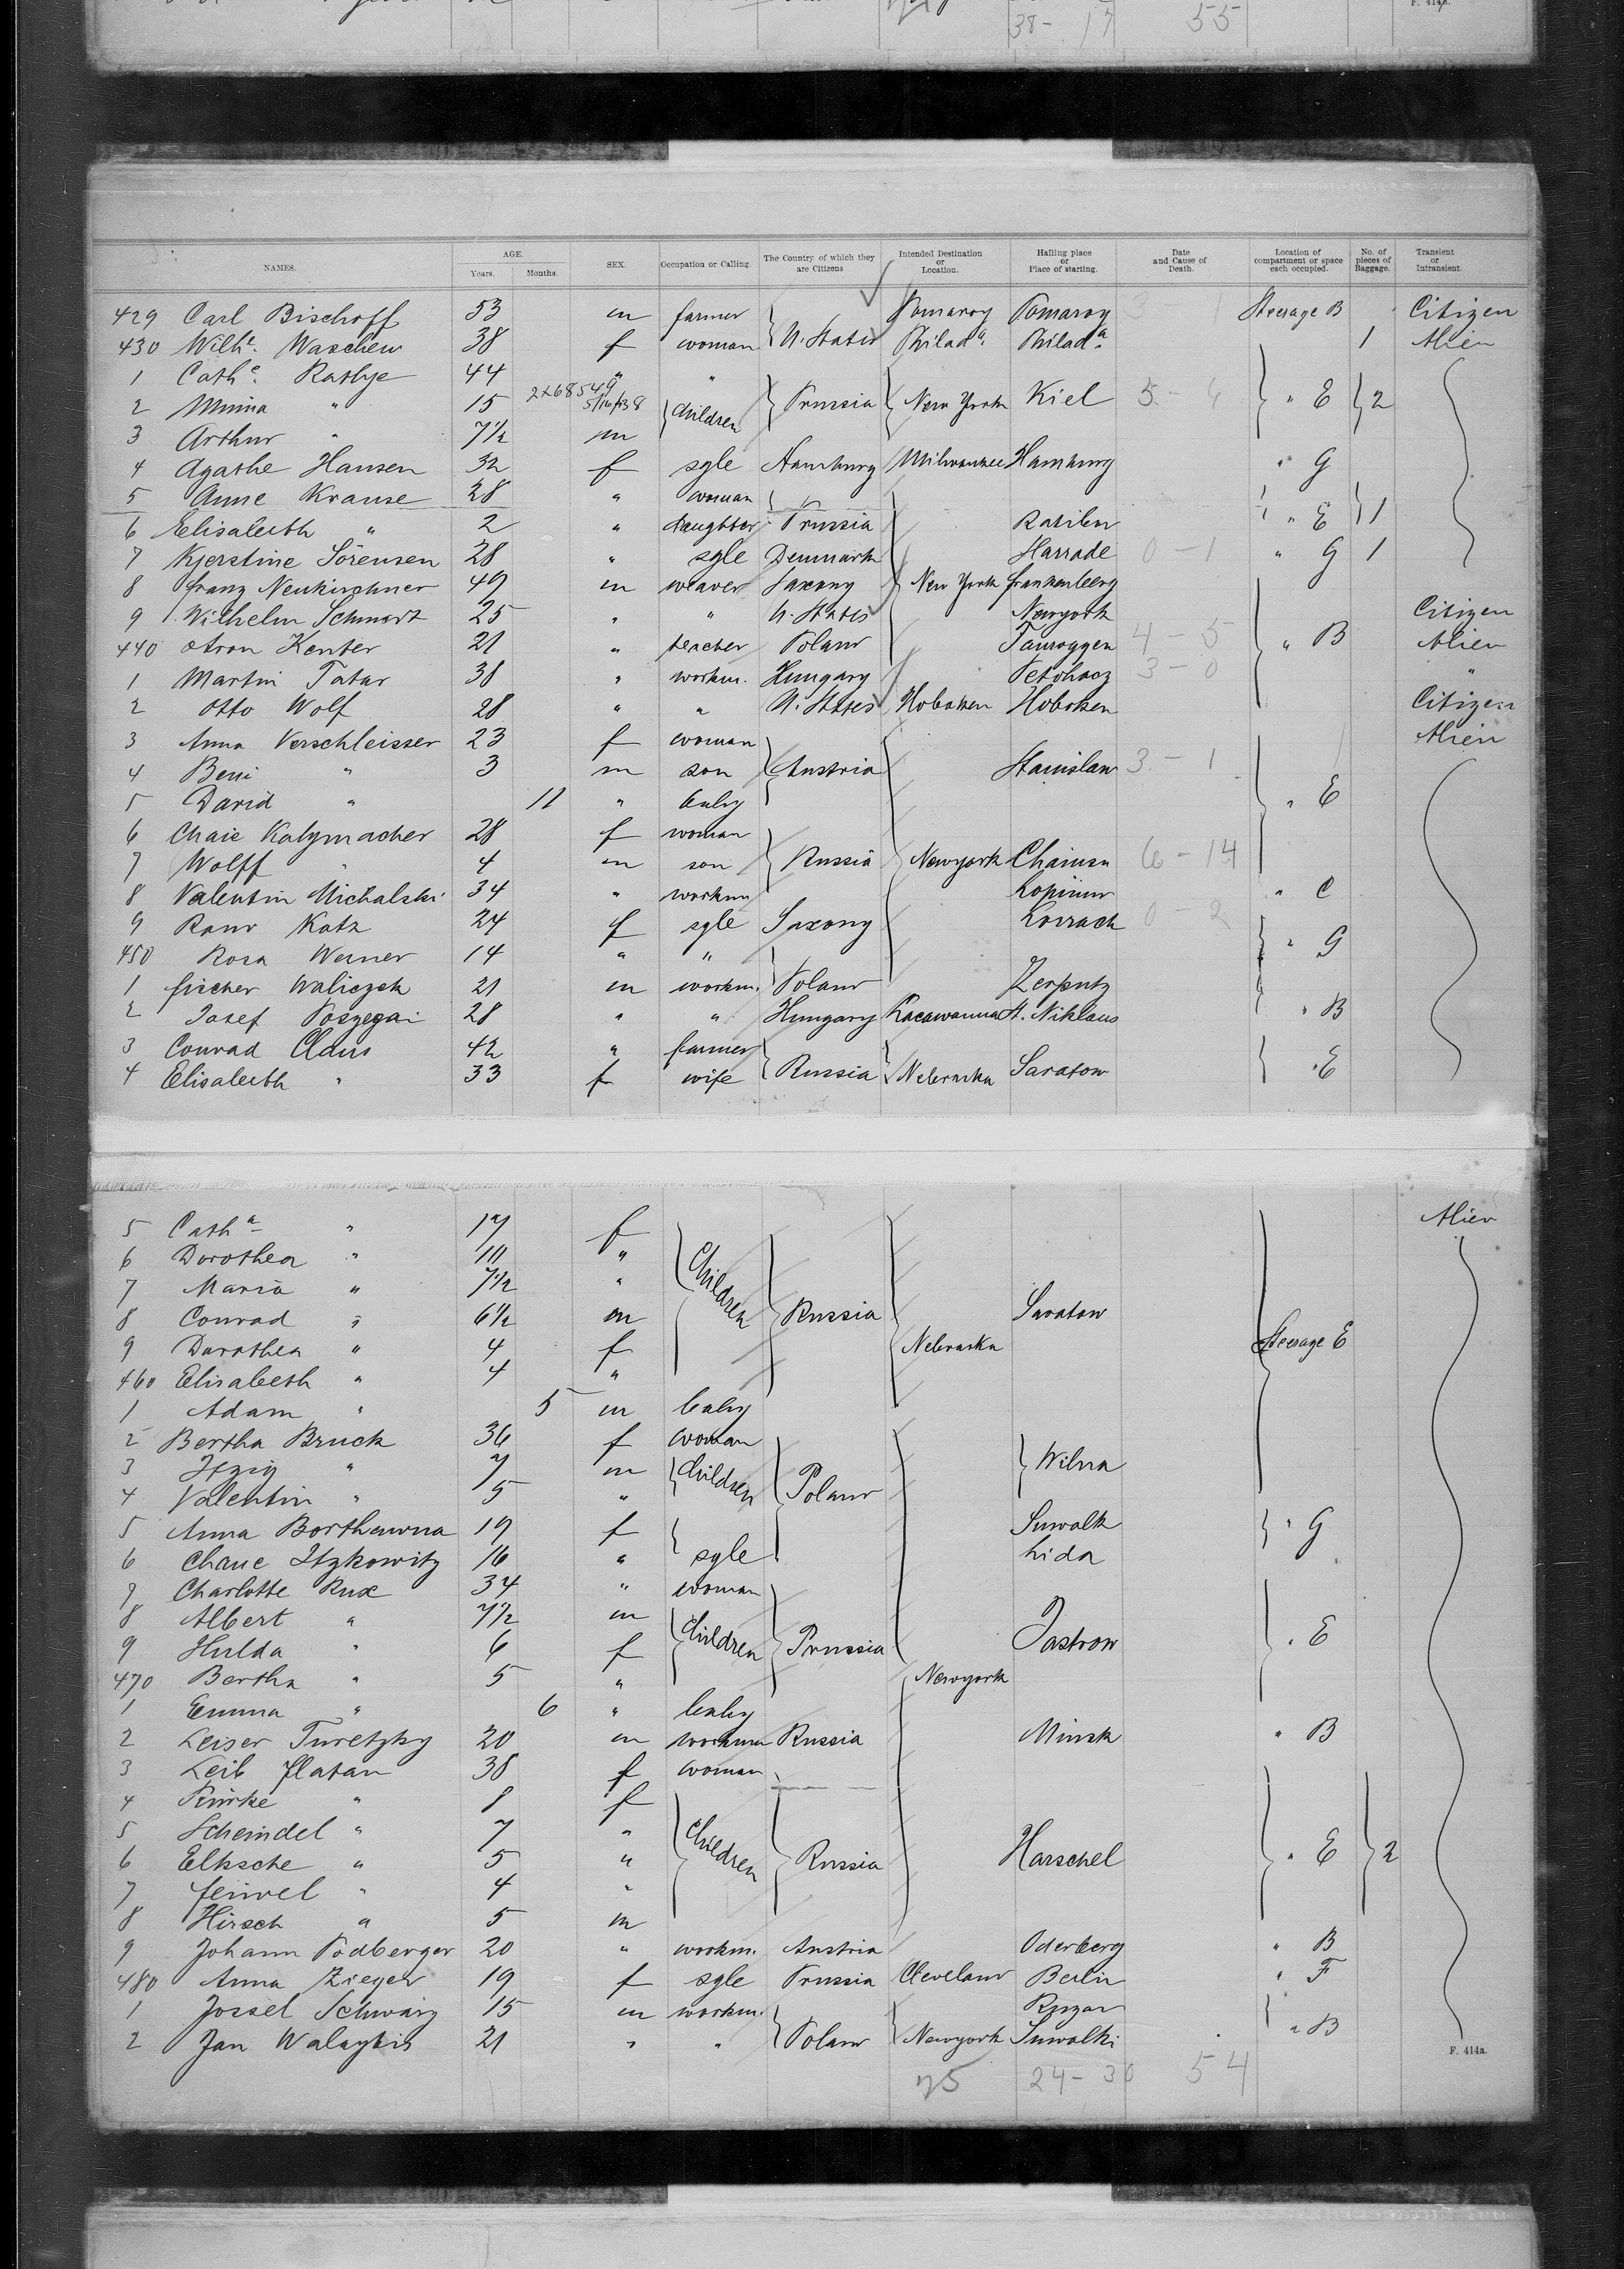 38- 17 55 F. 414a.
NAMES. AGE. Years. Months. SEX. Occupation or Calling. The Country of which they are Citizens Intended Destination or Location. Halling place or Place of starting. Date and Cause of Death. Location of compartment or space each occupied. No. of pieces of Baggage. Transient or Intransient.
429 Carl Bischoff 53 m farmer Pomaroy Pomaroy Steerage B Citizen
430 Wilhe. Waschew 38 f woman U. States Philada. Philada. 1 Alien
1 Cathe. Rathje 44 " "
2 Minna " 15 2x68549 5/16/38 children Prussia New York Kiel " E 2
3 Arthur " 7½ m
4 Agathe Hansen 32 f sgle Hamburg Milwaukee Hamburg " G
5 Anne Krause 28 " woman
6 Elisabeth " 2 " daughter Prussia " E 1
7 Kjerstine Sörensen 28 " sgle Denmark Harrade 0 - 1 " G 1
8 Franz Neukirchner 49 m weaver Saxony New York Frankenberg
9 Wilhelm Schmidt 25 " " U. States Newyork Citizen
440 Aron Kenter 21 " teacher Poland Tauroggen 4 - 5 " B Alien
1 Martin Tatar 38 " workm. Hungary 3 - 0 "
2 Otto Wolf 28 " " U. States Hoboken Hoboken Citizen
3 Anna Verschleisser 23 f woman Alien
4 Beni " 3 m son Austria Stanislaw 3 - 1
5 David " 11 " baby " E
6 Chaie Kalymacher 28 f woman
7 Wolff " 4 m son Russia Newyork 6 - 14
8 Valentin Michalski 34 " workm " C
9 Katz 24 f sgle Saxony 0 - 2
450 Rosa Werner 14 " " " G
1 Fischer Waliczek 21 m workm. Poland Zerputz
2 Josef Poszegai 28 " " Hungary Lacawanna St. Niklaus " B
3 Conrad Claus 42 " farmer
4 Elisabeth " 33 f wife Russia Nebraska Saratow " E
5 Catha " 17 f Alien
6 Dorothea " "
7 Maria " 7½ " Children
8 Conrad " 6½ m Russia Saratow
9 Dorothea " 4 f Nebraska Steerage E
460 Elisabeth " 4 "
1 Adam " 5 m baby
2 Bertha Bruck 36 f woman
3 Itzig " 7 m children Wilna
4 Valentin " 5 " Poland
5 Anna Borthawna 19 f Suwalk " G
6 Chane Itzkowitz 16 " sgle Lida
7 Charlotte Rux 34 " woman
8 Albert " 7½ m
9 Hulda " 6 f children Prussia Jastrow " E
470 Bertha " 5 " Newyork
1 Emma " 6 " baby
2 Leiser Turetzky 20 m workman Russia Minsk " B
3 Leib Flatau 38 f woman
4 " 8 f
5 Scheindel " 7 " children
6 Elksche " 5 " Russia Harschel " E 2
7 Feiwel " 4 "
8 Hirsch " 5 m
9 Johann Podberger 20 " workm. Austria Oderberg " B
480 Anna Zieger 19 f sgle Prussia Cleveland Berlin " F
1 Jossel Schwarz 15 m workm.
2 Jan 21 " " Poland Newyork Suwalki " B
F. 414a.
75 24- 30 54